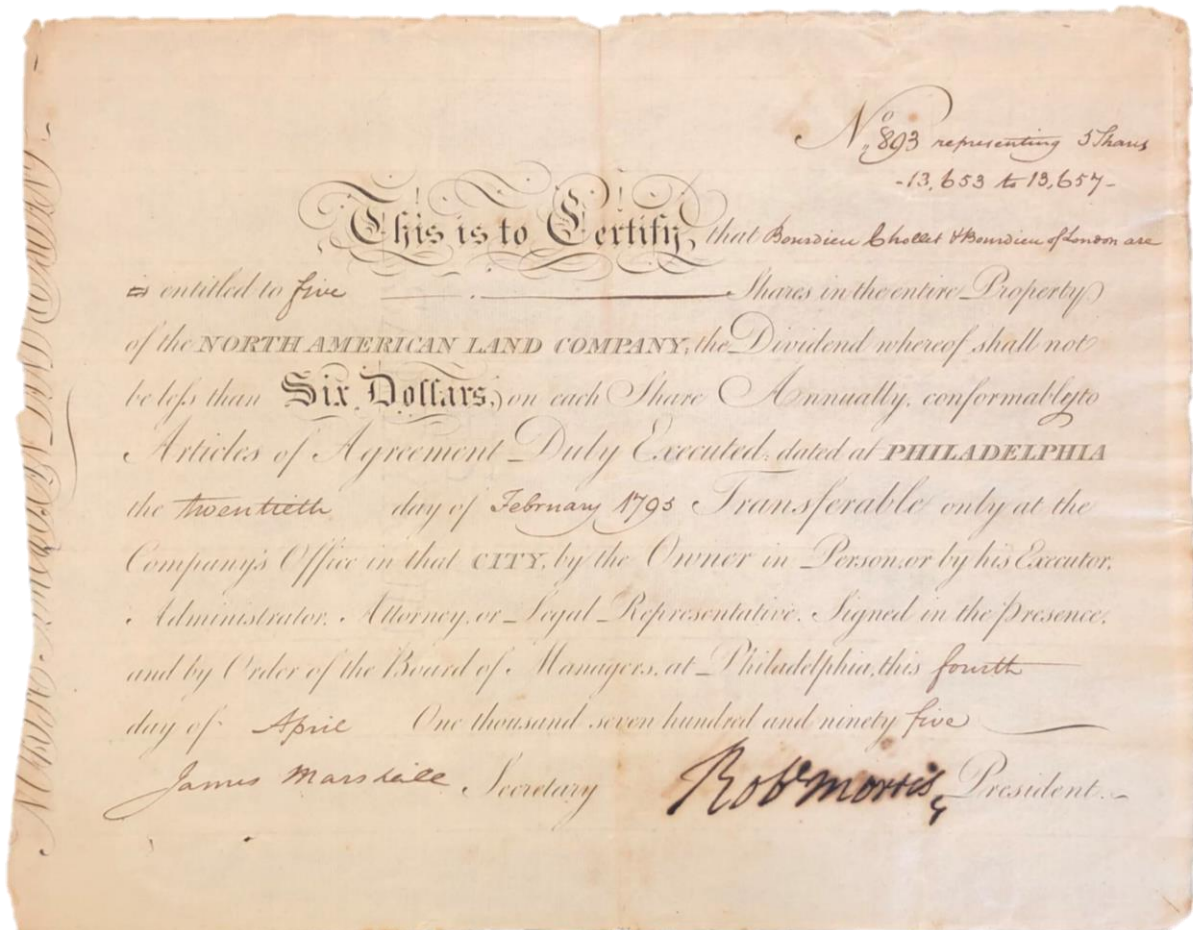 No. 893 representing 5 Shares
-13,653 to 13,657-
This is to Certify, that Bourdieu Chollet & Bourdieu of London are
is entitled to five Shares in the entire Property
of the NORTH AMERICAN LAND COMPANY, the Dividend whereof shall not
be less than Six Dollars, on each Share Annually, conformably to
Articles of Agreement Duly Executed; dated at PHILADELPHIA
the twentieth day of February 1795 Transferable only at the
Company's Office in that CITY, by the Owner in Person, or by his Executor,
Administrator, Attorney, or Legal Representative. Signed in the presence,
and by Order of the Board of Managers, at Philadelphia, this fourth
day of April One thousand seven hundred and ninety five
James Marshall Secretary Robt Morris President.